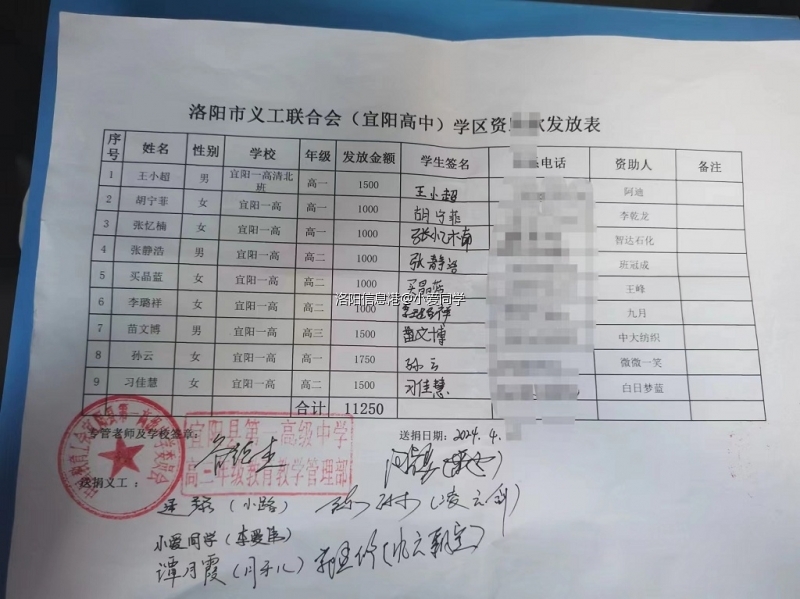 洛阳市义工联合会（宜阳高中）学区资 发放表
序号 姓名 性别 学校 年级 发放金额 学生签名 电话 资助人 备注
1 王小超 男 宜阳一高清北班 高一 1500 王小超 阿迪
2 胡宁菲 女 宜阳一高 高一 1000 胡宁菲 李乾龙
3 张忆楠 女 宜阳一高 高一 1000 张忆楠 智达石化
4 张静浩 男 宜阳一高 高二 1000 张静浩 班冠成
5 买晶蓝 女 宜阳一高 高二 1000 买晶蓝 王峰
6 李璐祥 女 宜阳一高 高二 1000 李璐祥 九月
7 苗文博 男 宜阳一高 高三 1500 苗文博 中大纺织
8 孙云 女 宜阳一高 高一 1750 孙云 微微一笑
9 习佳慧 女 宜阳一高 高二 1500 习佳慧 白日梦蓝
合计 11250
洛阳信息港@小爱同学
专管老师及学校签章： 送捐日期：2024.4.
宜阳县第一高级中学
高三年级教育教学管理部
送捐义工：
（小路）
小爱同学（李爱伟）
谭月霞（月牙儿）